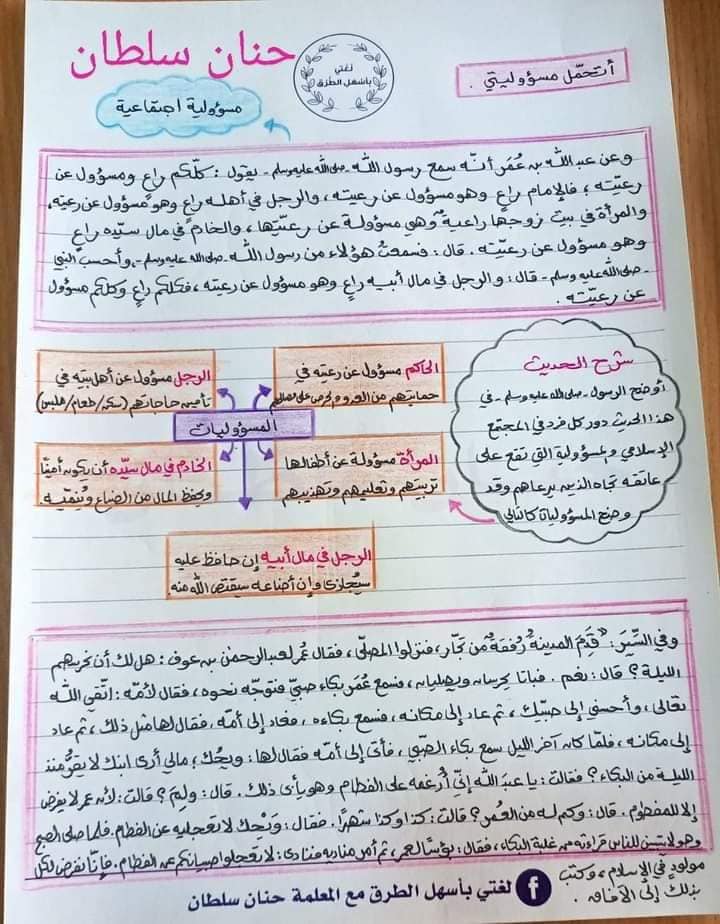 حنان سلطان
لغتي
بأسهل الطرق
أتحمّل مسؤوليتي .
مسؤولية اجتماعية
وعن عبدالله بن عُمَر أنّه سمع رسول الله - صلى الله عليه وسلم - يقول : كلّكم راعٍ ومسؤول عن
رعيّته ، فالإمام راعٍ وهو مسؤول عن رعيته ، والرجل في أهله راعٍ وهو مسؤول عن رعيته،
والمرأة في بيت زوجها راعية وهي مسؤولة عن رعيّتها ، والخادم في مال سيّده راعٍ
وهو مسؤول عن رعيّته . قال : فسمعتُ هؤلاء من رسول الله - صلى الله عليه وسلم - وأحسبُ النبي
- صلى الله عليه وسلم - قال : والرجل في مال أبيه راعٍ وهو مسؤول عن رعيته ، فكلكم راعٍ وكلكم مسؤول
عن رعيّته .
شرح الحديث
أوضح الرسول - صلى الله عليه وسلم - في
هذا الحديث دور كل فرد في المجتمع
الإسلامي والمسؤولية التي تقع على
عاتقه تجاه الذين يرعاهم وقد
وضح المسؤوليات كالتالي
المسؤوليات
الحاكم مسؤول عن رعيته في
حمايتهم من العدو والحرص على مصالحهم
الرجل مسؤول عن أهل بيته في
تأمين حاجاتهم (سكن/ طعام/ ملبس)
المرأة مسؤولة عن أطفالها
تربيتهم وتعليمهم وتهذيبهم
الخادم في مال سيّده أن يكون أمينًا
ويحفظ المال من الضياع ويُنمّيه
الرجل في مال أبيه إن حافظ عليه
سيُجازى وإن أضاعه سيقتص الله منه
وفي السِّيَر : " قَدِمَ المدينة رُفقةٌ من تجّار، فنزلوا المصلّى ، فقال عُمر لعبدالرحمن بن عوف : هل لك أن نحرسهم
الليلة ؟ قال : نعم . فباتا يحرسانه ويصليان ، فسمع عُمَر بكاء صبيّ فتوجّه نحوه ، فقال لأمّه : اتّقي الله
تعالى ، وأحسني إلى صبيّك ، ثم عاد إلى مكانه ، فسمع بكاءه ، فعاد إلى أمّه فقال لها مثل ذلك ، ثم عاد
إلى مكانه ، فلمّا كان آخر الليل سمع بكاء الصّبي ، فأتى إلى أمّه فقال لها : ويحُك ؛ مالي أرى ابنك لا يقرُّ منذ
الليلة من البكاء ؟ فقالت : يا عبد الله إنّي أُرغمه على الفطام وهو يأبى ذلك . قال : ولِمَ ؟ قالت : لأنه عمر لا يفرض
إلا للمفطوم . قال : وكم له من العُمر ؟ قالت : كذا وكذا شهرًا . فقال : ويْحك لا تعجليه عن الفطام . فلما صلى الصبح
وهو لا يتبين للناس قراءته من غلبة البكاء ، فقال : بؤسًا لعمر، ثم أمر مناديه فنادى : لا تعجلوا صبيانكم عن الفطام . فإنّا نفرض لكل
مولودٍ في الإسلام ، وكتب
بذلك إلى الآفاق .
لغتي بأسهل الطرق مع المعلمة حنان سلطان